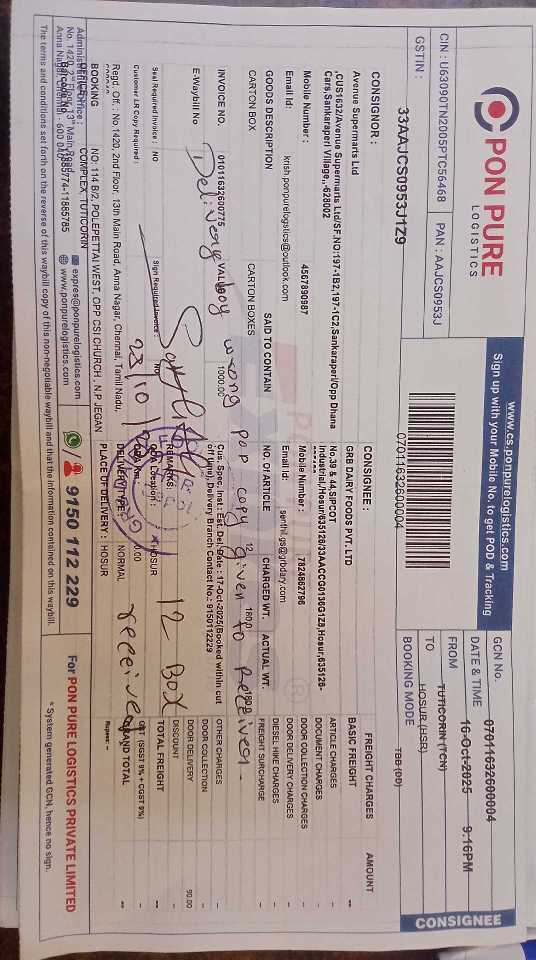 PON PURE
LOGISTICS
www.cs.ponpurelogistics.com
Sign up with your Mobile No. to get POD & Tracking
CONSIGNEE
CIN : U63090TN2005PTC56468 PAN : AAJCS0953J
GSTIN : 33AAJCS0953J1Z9
07011632600004
GCN No. 07011632600004
DATE & TIME 16-Oct-2025 9:16PM
FROM TUTICORIN (TCN)
TO HOSUR (HSR)
BOOKING MODE TBB (DD)
CONSIGNOR :
Avenue Supermarts Ltd
,CUS1632/Avenue Supermarts Ltd/SF.NO:197-1B2,197-1C2,Sankaraperi/Opp Dhana
Cars,Sankaraperi Village,,-628002
Mobile Number : 4567890987
Email Id: krish.ponpurelogistics@outlook.com
CONSIGNEE :
GRB DAIRY FOODS PVT. LTD
No.39 & 44,SIPCOT
Industrial,Hosur/635126/33AACCG0196G1Z8,Hosur,635126-
Mobile Number : 7824862796
Email Id: senthil.gs@grbdairy.com
FREIGHT CHARGES AMOUNT
BASIC FREIGHT --
ARTICLE CHARGES
DOCUMENT CHARGES
DOOR COLLECTION CHARGES
DOOR DELIVERY CHARGES
DIESEL HIKE CHARGES
FREIGHT SURCHARGE
OTHER CHARGES
DOOR COLLECTION
DOOR DELIVERY 90.00
DISCOUNT
TOTAL FREIGHT --
GST (SGST 9% + CGST 9%) --
GRAND TOTAL --
Rupees: --
GOODS DESCRIPTION SAID TO CONTAIN NO. OF ARTICLE CHARGED WT. ACTUAL WT.
CARTON BOX CARTON BOXES 12 180.0
INVOICE NO. 01011632600775 VALUE 1000.00
Delivery boy wrong copy given to Receiver.
E-Waybill No
Cus. Spec. Inst : Est. Del. Date : 17-Oct-2025(Booked within cut
off time), Delivery Branch Contact No.: 9150112229
Seal Required Invoice : NO Sign Required Invoice : NO
REMARKS
Customer LR Copy Required :
23/10/
12 Box
received
HOSUR
Regd. Off. : No.1420, 2nd Floor, 13th Main Road, Anna Nagar, Chennai, Tamil Nadu,
DELIVERY TYPE : NORMAL
BOOKING NO: 114 B/2, POLEPETTAI WEST, OPP CSI CHURCH , N.P JEGAN
COMPLEX, TUTICORIN
PLACE OF DELIVERY : HOSUR
Administrative Office :
No. 1420, 2nd Floor, 13th Main Road,
Anna Nagar, Chennai - 600 040.
expres@ponpurelogistics.com
www.ponpurelogistics.com
9150 112 229
For PON PURE LOGISTICS PRIVATE LIMITED
The terms and conditions set forth on the reverse of this waybill copy of this non-negotiable waybill and that the information contained on this waybill.
* System generated GCN, hence no sign.